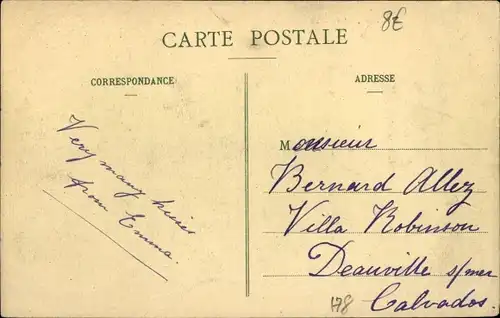 8€
CARTE POSTALE
CORRESPONDANCE
ADRESSE
Very many kisses
from Emma.
Monsieur
Bernard Allez
Villa Robinson
Deauville s/mer
Calvados.
178